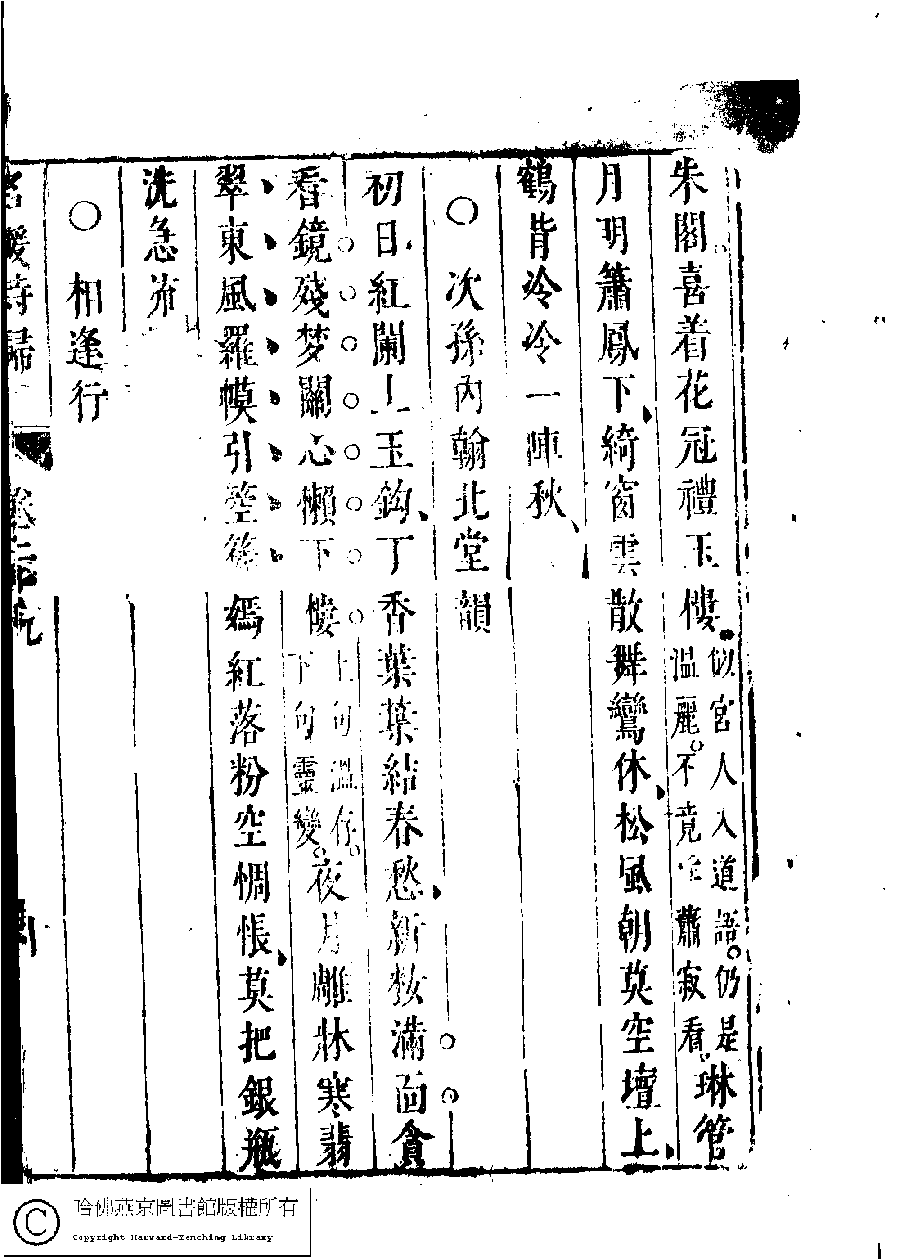 朱閣喜着花冠禮玉樓似宮人入道語仍是溫麗不竟蕭寂看琳管
月明簫鳳下綺窗雲散舞鸞休松風朝莫空壇上
鶴背冷冷一陣秋
○ 次孫內翰北堂韻
初日紅闌上玉鈎丁香葉葉結春愁新妝滿面貪
看鏡殘梦關心懶下樓上句溫存下句靈變夜月雕牀寒翡
翠東風羅幙引箜篌嫣紅落粉空惆悵莫把銀瓶
洗急流
○ 相逢行
名媛詩歸
卷二
哈佛燕京圖書館版權所有
Copyright Harvard-Yenching Library